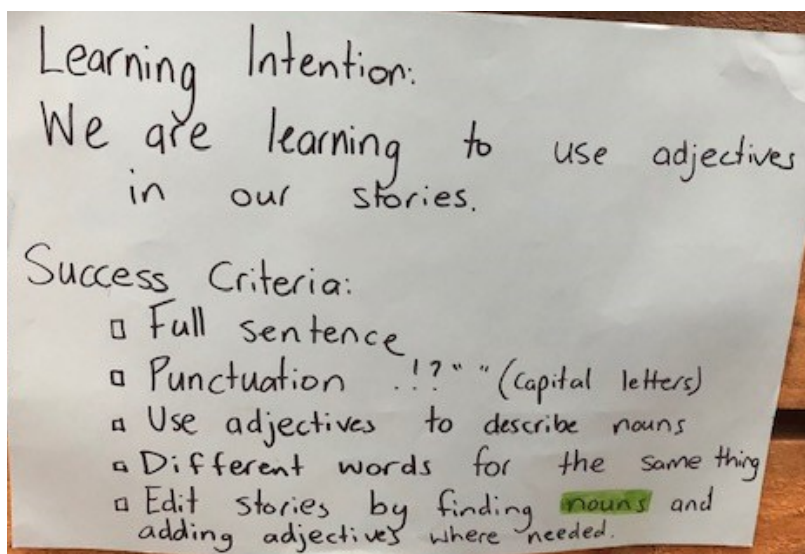 Learning Intention:
We are learning to use adjectives
in our stories.
Success Criteria:
□ Full sentence
□ Punctuation .!?" " (capital letters)
□ Use adjectives to describe nouns
□ Different words for the same thing
□ Edit stories by finding nouns and
adding adjectives where needed.